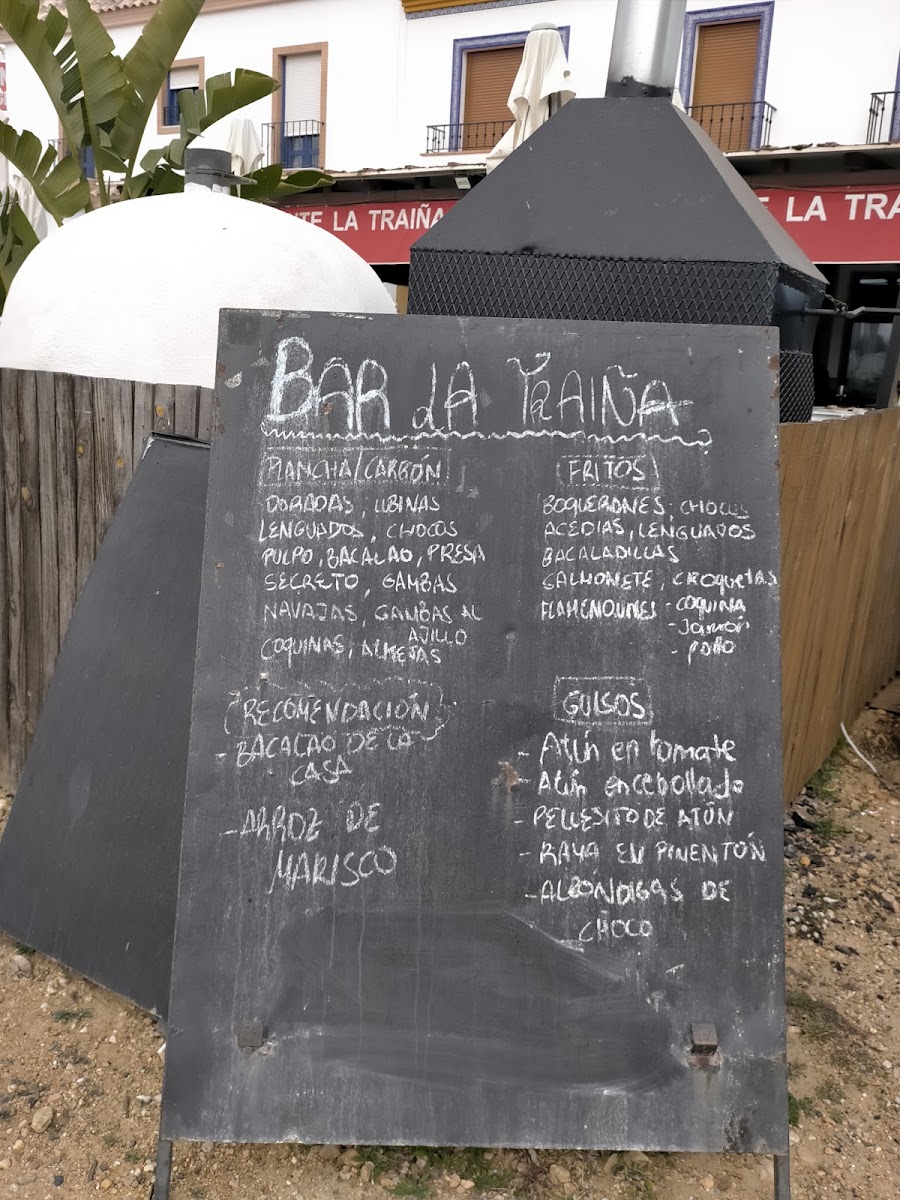 NTE LA TRAIÑA
LA TRA
BAR LA TRAIÑA
PLANCHA/CARBÓN
DORADAS, LUBINAS
LENGUADOS, CHOCOS
PULPO, BACALAO, PRESA
SECRETO, GAMBAS
NAVAJAS, GAMBAS AL
AJILLO
COQUINAS, ALMEJAS
RECOMENDACIÓN
- BACALAO DE LA
CASA
- ARROZ DE
MARISCO
FRITOS
BOQUERONES. CHOCOS
ACEDIAS, LENGUADOS
BACALADILLAS
SALMONETE, CROQUETAS
FLAMENQUINES - COQUINA
- Jamón
- pollo
GUISOS
- Atún en tomate
- Atún encebollado
- PELLESITO DE ATÚN
- RAYA EN PIMENTÓN
- ALBÓNDIGAS DE
CHOCO